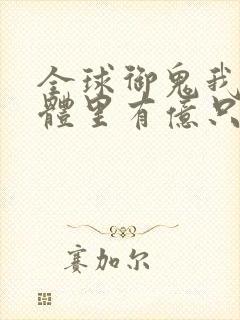 全球御鬼我
體里有億只
賽加尔